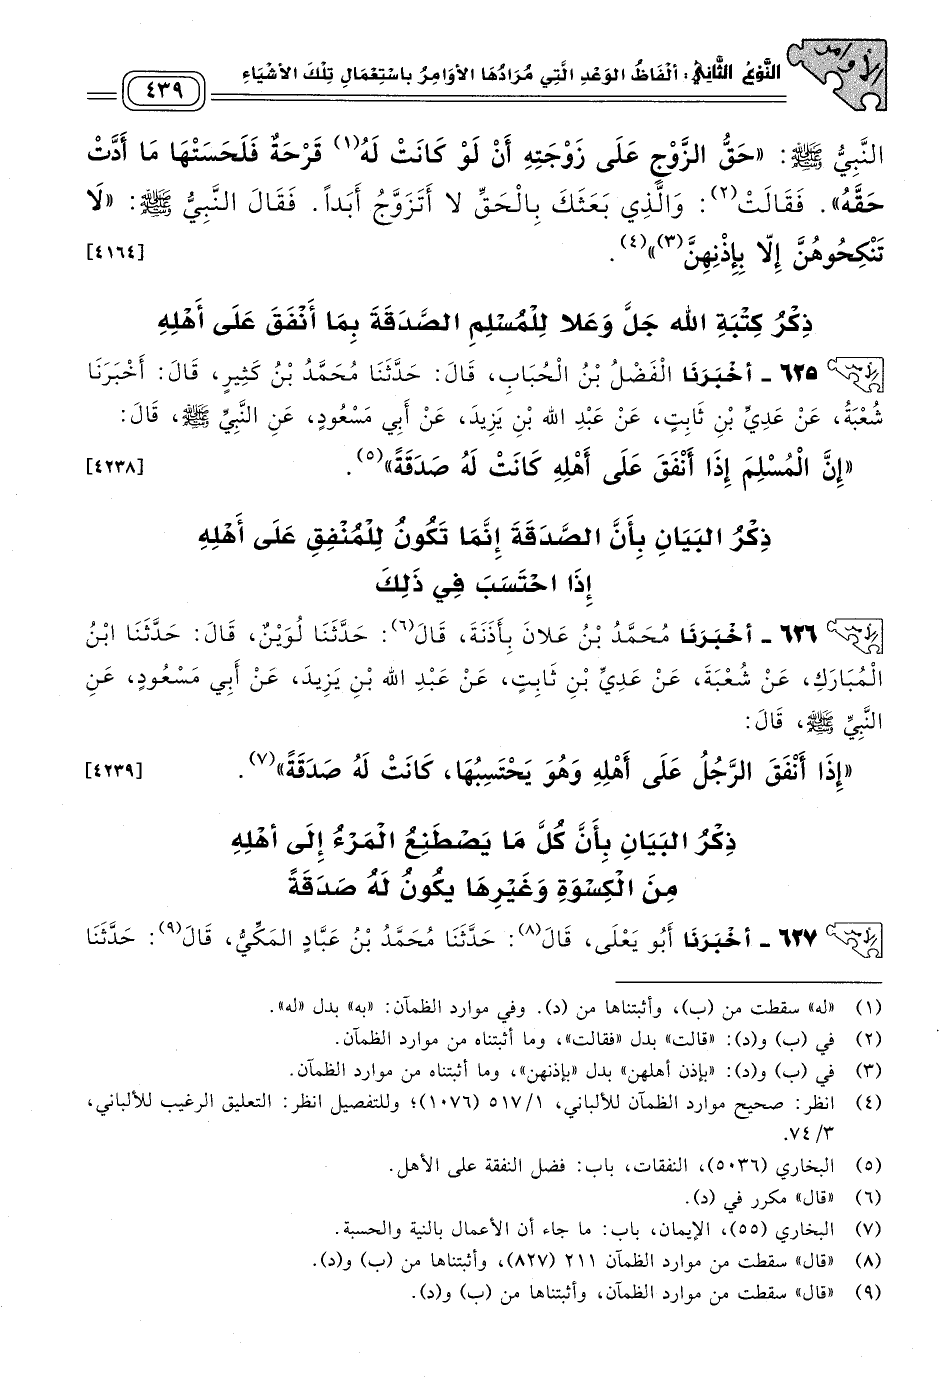 النَّوْعُ الثَّانِي: أَلْفَاظُ الوَعْدِ الَّتِي مُرَادُهَا الأَوَامِرُ بِاسْتِعْمَالِ تِلْكَ الأَشْيَاءِ
٤٣٩
النَّبِيُّ ﷺ: «حَقُّ الزَّوْجِ عَلَى زَوْجَتِهِ أَنْ لَوْ كَانَتْ لَهُ(١) قَرْحَةٌ فَلَحَسَتْهَا مَا أَدَّتْ
حَقَّهُ». فَقَالَتْ(٢): وَالَّذِي بَعَثَكَ بِالْحَقِّ لا أَتَزَوَّجُ أَبَداً. فَقَالَ النَّبِيُّ ﷺ: «لَا
تَنْكِحُوهُنَّ إِلّا بِإِذْنِهِنَّ(٣)»(٤). [٤١٦٤]
ذِكْرُ كِتْبَةِ الله جَلَّ وَعَلا لِلْمُسْلِمِ الصَّدَقَةَ بِمَا أَنْفَقَ عَلَى أَهْلِهِ
٦٢٥ - أَخْبَرَنَا الْفَضْلُ بْنُ الْحُبَابِ، قَالَ: حَدَّثَنَا مُحَمَّدُ بْنُ كَثِيرٍ، قَالَ: أَخْبَرَنَا
شُعْبَةُ، عَنْ عَدِيِّ بْنِ ثَابِتٍ، عَنْ عَبْدِ الله بْنِ يَزِيدَ، عَنْ أَبِي مَسْعُودٍ، عَنِ النَّبِيِّ ﷺ، قَالَ:
«إِنَّ الْمُسْلِمَ إِذَا أَنْفَقَ عَلَى أَهْلِهِ كَانَتْ لَهُ صَدَقَةً»(٥). [٤٢٣٨]
ذِكْرُ البَيَانِ بِأَنَّ الصَّدَقَةَ إِنَّمَا تَكُونُ لِلْمُنْفِقِ عَلَى أَهْلِهِ
إِذَا احْتَسَبَ فِي ذَلِكَ
٦٢٦ - أَخْبَرَنَا مُحَمَّدُ بْنُ عَلانَ بِأَذَنَةَ، قَالَ(٦): حَدَّثَنَا لُوَيْنٌ، قَالَ: حَدَّثَنَا ابْنُ
الْمُبَارَكِ، عَنْ شُعْبَةَ، عَنْ عَدِيِّ بْنِ ثَابِتٍ، عَنْ عَبْدِ الله بْنِ يَزِيدَ، عَنْ أَبِي مَسْعُودٍ، عَنِ
النَّبِيِّ ﷺ، قَالَ:
«إِذَا أَنْفَقَ الرَّجُلُ عَلَى أَهْلِهِ وَهُوَ يَحْتَسِبُهَا، كَانَتْ لَهُ صَدَقَةً»(٧). [٤٢٣٩]
ذِكْرُ البَيَانِ بِأَنَّ كُلَّ مَا يَصْطَنِعُ الْمَرْءُ إِلَى أَهْلِهِ
مِنَ الْكِسْوَةِ وَغَيْرِهَا يكُونُ لَهُ صَدَقَةً
٦٢٧ - أَخْبَرَنَا أَبُو يَعْلَى، قَالَ(٨): حَدَّثَنَا مُحَمَّدُ بْنُ عَبَّادٍ المَكِّيُّ، قَالَ(٩): حَدَّثَنَا
(١) «له» سقطت من (ب)، وأثبتناها من (د). وفي موارد الظمآن: «به» بدل «له».
(٢) في (ب) و(د): «قالت» بدل «فقالت»، وما أثبتناه من موارد الظمآن.
(٣) في (ب) و(د): «بإذن أهلهن» بدل «بإذنهن»، وما أثبتناه من موارد الظمآن.
(٤) انظر: صحيح موارد الظمآن للألباني، ١/ ٥١٧ (١٠٧٦)؛ وللتفصيل انظر: التعليق الرغيب للألباني،
٣/ ٧٤.
(٥) البخاري (٥٠٣٦)، النفقات، باب: فضل النفقة على الأهل.
(٦) «قال» مكرر في (د).
(٧) البخاري (٥٥)، الإيمان، باب: ما جاء أن الأعمال بالنية والحسبة.
(٨) «قال» سقطت من موارد الظمآن ٢١١ (٨٢٧)، وأثبتناها من (ب) و(د).
(٩) «قال» سقطت من موارد الظمآن، وأثبتناها من (ب) و(د).